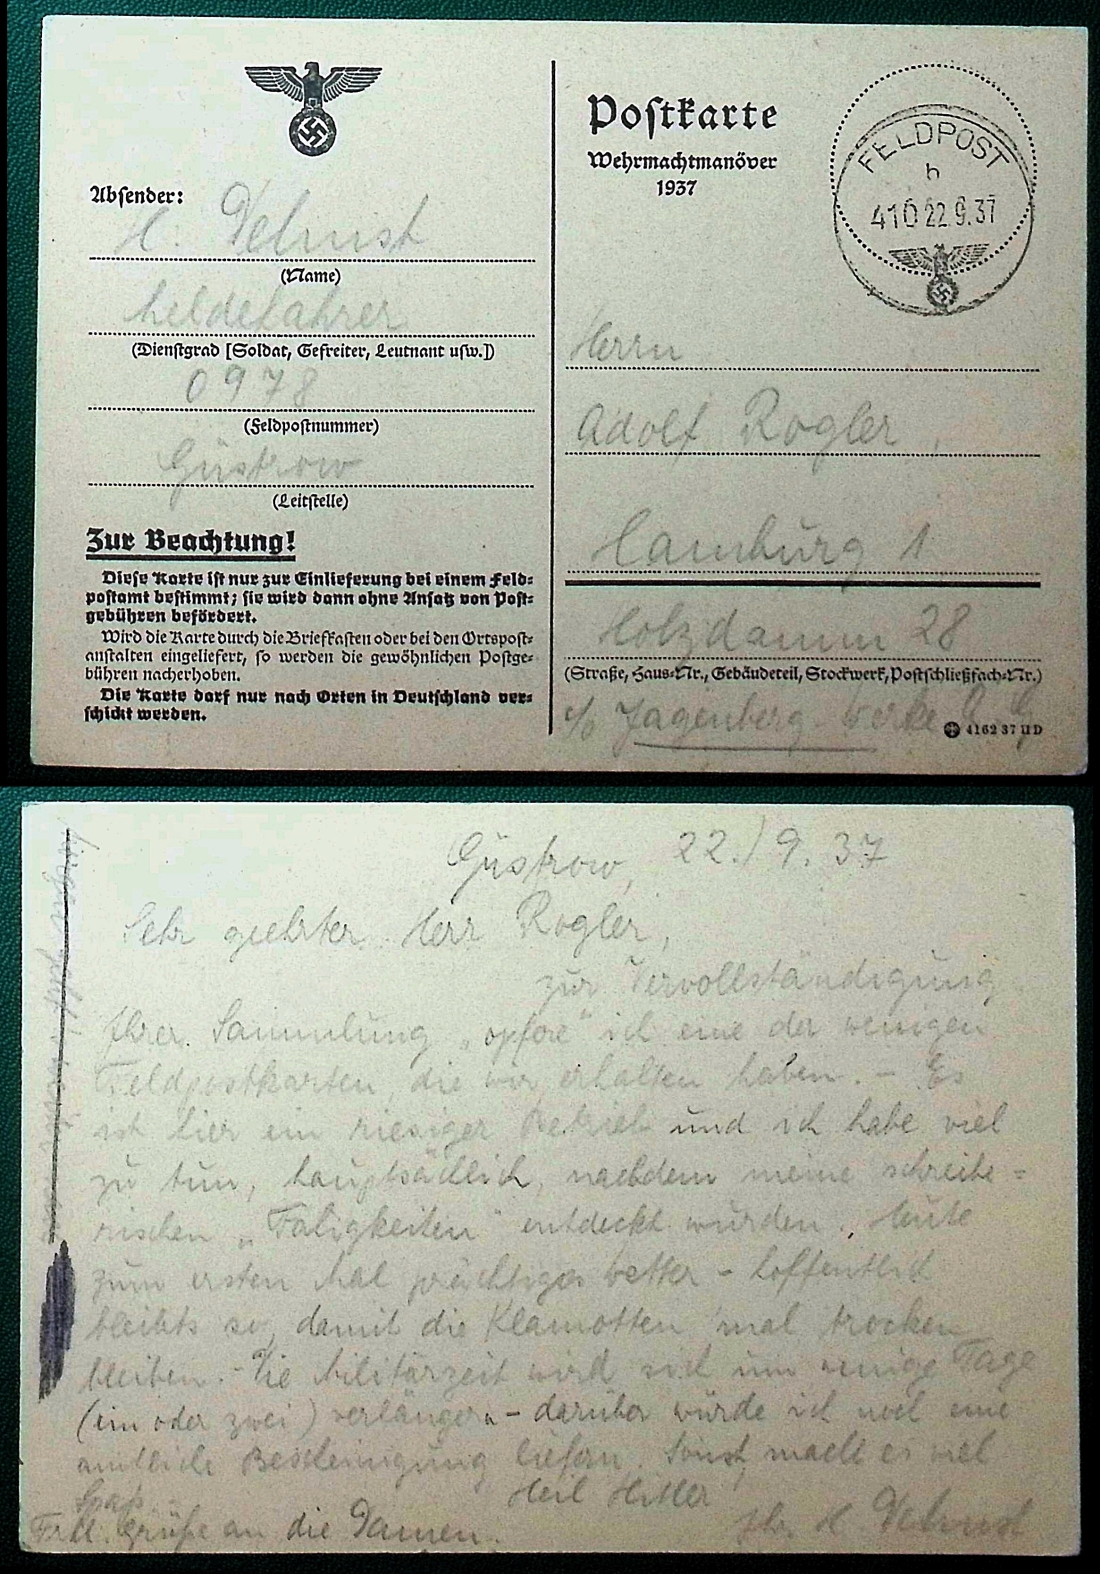 Absender:
H. Dehnst
(Name)
Meldefahrer
(Dienstgrad [Soldat, Gefreiter, Leutnant usw.])
0978
(Feldpostnummer)
Güstrow
(Leitstelle)
Zur Beachtung!
Diese Karte ist nur zur Einlieferung bei einem Feld-
postamt bestimmt; sie wird dann ohne Ansatz von Post-
gebühren befördert.
Wird die Karte durch die Briefkasten oder bei den Ortspost-
anstalten eingeliefert, so werden die gewöhnlichen Postge-
bühren nacherhoben.
Die Karte darf nur nach Orten in Deutschland ver-
schickt werden.
Postkarte
Wehrmachtmanöver
1937
FELDPOST
h
410 22.9.37
Herrn
Adolf Rogler,
Hamburg 1
Holzdamm 28
(Straße, Haus-Nr., Gebäudeteil, Stockwerk, Postschließfach-Nr.)
c/o Jagenberg Werke A.G.
4162 37 II D
Güstrow, 22./9.37
Sehr geehrter Herr Rogler,
zur Vervollständigung
Ihrer Sammlung „opfere“ ich eine der wenigen
Feldpostkarten, die wir erhalten haben. – Es
ist hier ein riesiger Betrieb und ich habe viel
zu tun, hauptsächlich, nachdem meine schreibe-
rischen „Fähigkeiten“ entdeckt wurden. Heute
zum ersten Mal prächtiges Wetter – hoffentlich
bleibts so, damit die Klamotten mal trocken
bleiben. – Die Militärzeit wird sich um wenige Tage
(ein oder zwei) verlängern – darüber würde ich noch eine
amtliche Bescheinigung liefern. Sonst macht es viel
Spaß.
Heil Hitler
Ihr H Dehnst
Frdl. Grüße an die Damen.